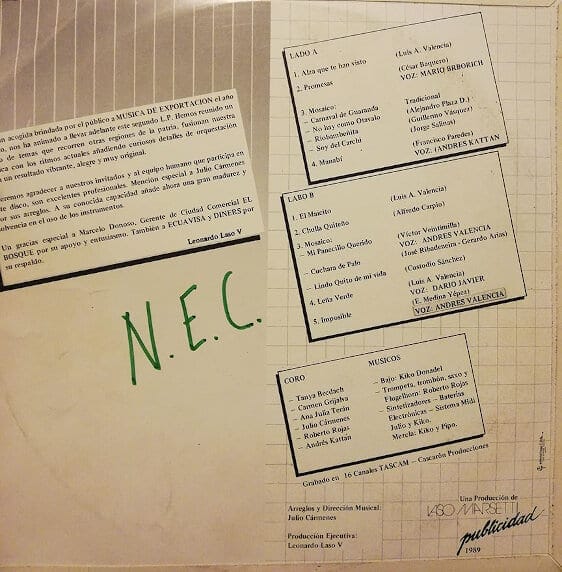 n acogida brindada por el público a MUSICA DE EXPORTACION el año
o, nos ha animado a llevar adelante este segundo L.P. Hemos reunido un
o de temas que recorren otras regiones de la patria, fusionan nuestra
ica con los ritmos actuales añadiendo curiosos detalles de orquestación
n un resultado vibrante, alegre y muy original.
eremos agradecer a nuestros invitados y al equipo humano que participa en
te disco, son excelentes profesionales. Mención especial a Julio Cármenes
or sus arreglos. A su conocida capacidad añade ahora una gran madurez y
olvencia en el uso de los instrumentos.
Un gracias especial a Marcelo Donoso, Gerente de Ciudad Comercial EL
BOSQUE por su apoyo y entusiasmo. También a ECUAVISA y DINERS por
su respaldo.
Leonardo Laso V
N.E.C.
LADO A
1. Alza que te han visto (Luis A. Valencia)
2. Promesas (César Baquero)
VOZ: MARIO BRBORICH
3. Mosaico:
– Carnaval de Guaranda Tradicional
– No hay como Otavalo (Alejandro Plaza D.)
– Riobambeñita (Guillermo Vásquez)
– Soy del Carchi (Jorge Salinas)
4. Manabí (Francisco Paredes)
VOZ: (ANDRES KATTAN
LADO B
1. El Maicito (Luis A. Valencia)
2. Chulla Quiteño (Alfredo Carpio)
3. Mosaico:
– Mi Panecillo Querido (Víctor Veintimilla)
VOZ: ANDRES VALENCIA
– Cuchara de Palo (José Ribadeneira - Gerardo Arias)
– Lindo Quito de mi vida (Custodio Sánchez)
4. Leña Verde (Luis A. Valencia)
VOZ: DARIO JAVIER
5. Imposible (E. Medina Yépez)
VOZ: ANDRES VALENCIA
CORO
– Tanya Becdach
– Carmen Grijalva
– Ana Julia Terán
– Julio Cármenes
– Roberto Rojas
– Andrés Kattán
MUSICOS
– Bajo: Kiko Donadel
– Trompeta, trombón, saxo y
Flugelhorn: Roberto Rojas
– Sintetizadores – Baterías
Electrónicas – Sistema Midi
Julio y Kiko.
Mezcla: Kiko y Pipo.
Grabado en 16 Canales TASCAM – Cascarón Producciones
Arreglos y Dirección Musical:
Julio Cármenes
Producción Ejecutiva:
Leonardo Laso V
Una Producción de
LASO MARSETTI
publicidad
1989